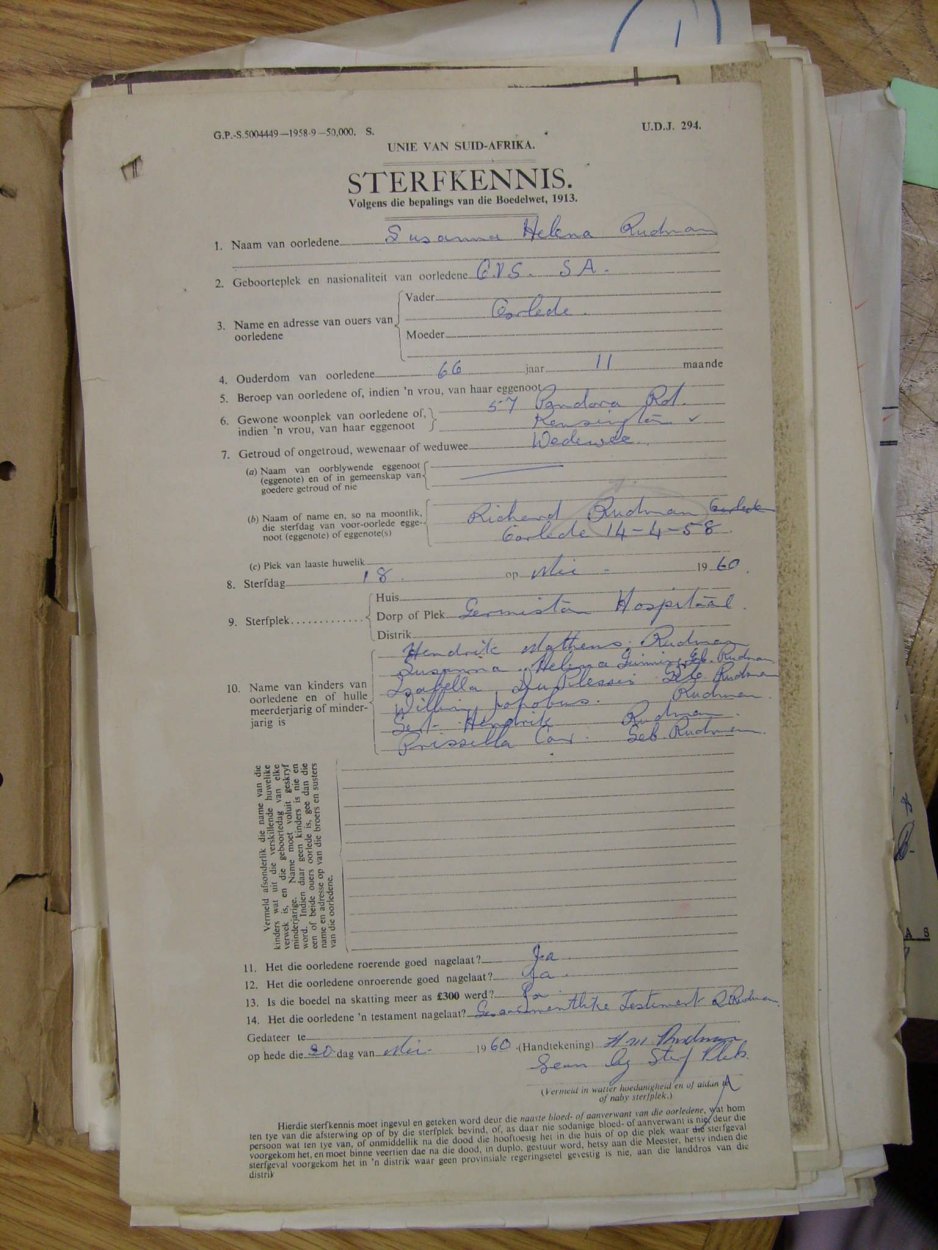 G.P.-S.5004449—1958-9—50,000. S.
U.D.J. 294.
UNIE VAN SUID-AFRIKA.
STERFKENNIS.
Volgens die bepalings van die Boedelwet, 1913.
1. Naam van oorledene Susanna Helena Rudman
2. Geboorteplek en nasionaliteit van oorledene O.V.S. S.A.
3. Name en adresse van ouers van oorledene
Vader
Oorlede.
Moeder
4. Ouderdom van oorledene 66 jaar 11 maande
5. Beroep van oorledene of, indien 'n vrou, van haar eggenoot
6. Gewone woonplek van oorledene of, indien 'n vrou, van haar eggenoot
57 Pandora Rd.
Kensington
7. Getroud of ongetroud, wewenaar of weduwee Weduwee
(a) Naam van oorblywende eggenoot
(eggenote) en of in gemeenskap van
goedere getroud of nie
(b) Naam of name en, so na moontlik,
die sterfdag van voor-oorlede egge-
noot (eggenote) of eggenote(s)
Richard Rudman
Oorlede 14-4-58
(c) Plek van laaste huwelik
8. Sterfdag 18 op Mei 1960.
9. Sterfplek
Huis
Dorp of Plek Germiston Hospitaal.
Distrik
10. Name van kinders van
oorledene en of hulle
meerderjarig of minder-
jarig is
Hendrik Matheus Rudman
Susanna Helena Geb. Rudman
Isabella Du Plessis Rudman
Willem Jakobus Rudman.
Hendrik Rudman.
Prissella Geb. Rudman
Vermeld afsonderlik die name van die
kinders wat uit die verskillende huwelike
verwek is, en die geboortedag van elke
minderjarige. Name moet voluit geskryf
word. Indien daar geen kinders is nie en
een of beide ouers oorlede is, gee dan die
name en adresse op van die broers en susters
van die oorledene.
11. Het die oorledene roerende goed nagelaat? Ja
12. Het die oorledene onroerende goed nagelaat? Ja
13. Is die boedel na skatting meer as £300 werd? Ja
14. Het die oorledene 'n testament nagelaat? Gesamentlike Testament R Rudman
Gedateer te
op hede die 20 dag van Mei 1960 (Handtekening) H M Rudman
Seun by Sterf Plek
(Vermeld in watter hoedanigheid en of aldan of
of naby sterfplek.)
Hierdie sterfkennis moet ingevul en geteken word deur die naaste bloed- of aanverwant van die oorledene, wat hom
ten tye van die afsterwing op of by die sterfplek bevind, of, as daar nie sodanige bloed- of aanverwant is nie, deur die
persoon wat ten tye van, of onmiddellik na die dood die hooftoesig het in die huis of op die plek waar die sterfgeval
voorgekom het, en moet binne veertien dae na die dood, in duplo, gestuur word, hetsy aan die Meester, hetsy indien die
sterfgeval voorgekom het in 'n distrik waar geen provinsiale regeringsetel gevestig is nie, aan die landdros van die
distrik